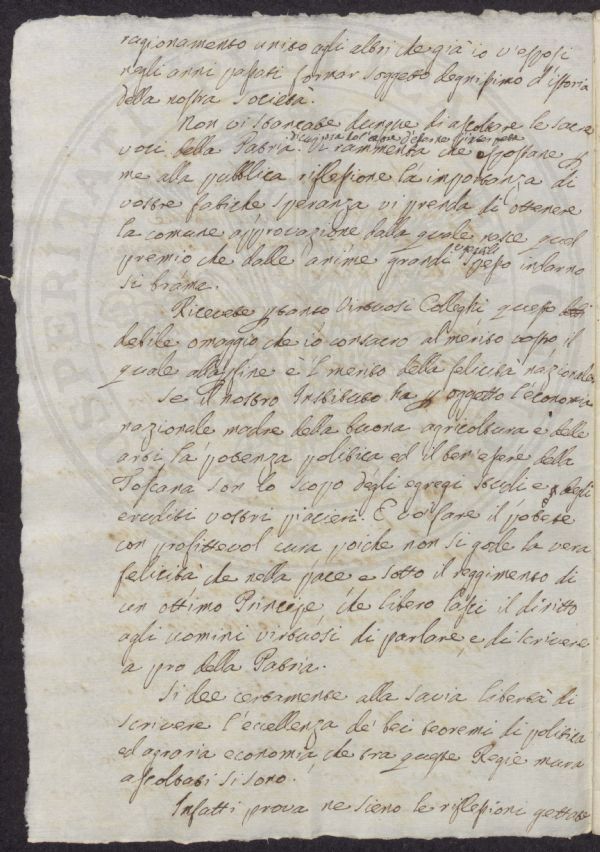 ragionamento unito agli altri che già io v'esposi
negli anni passati formar soggetto degnissimo d'istoria
della nostra Società.
Non vi stancate dunque di ascoltare le sacre
voci della Patria. Vi rammenta che esponeste
me alla pubblica riflessione la importanza di
vostre fatiche speranza vi prenda di ottenere
la comune approvazione dalla quale nasce quel
premio che dalle anime grandi spesso indarno
si brama.
Ricevete pertanto Virtuosi Colleghi questo
debile omaggio che io consacro al merito vostro il
quale alla fine è 'l merito della felicità nazionale.
Se il nostro Instituto ha p oggetto l'economia
nazionale madre della buona agricoltura e delle
arti la potenza politica ed il ben'essere della
Toscana son lo scopo degli egregi studi e degli
eruditi vostri piaceri. E voi fare il potete
con profittevol cura poiche non si gode la vera
felicità che nella pace e sotto il reggimento di
un ottimo Principe che libero lasci il diritto
agli uomini virtuosi di parlare, e di scrivere
a pro della Patria.
Si dee certamente alla savia libertà di
scrivere l'eccellenza de' bei teoremi di politica
ed agraria economia, che tra queste Regie mura
ascoltati si sono.
Infatti prova ne sieno le riflessioni gettate